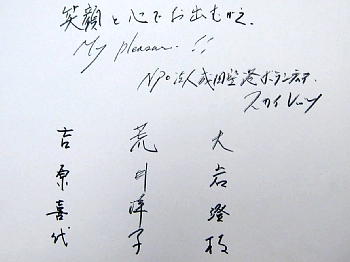 笑顔と心でお出むかえ.
My pleasure.!!
NPO法人成田空港ボランティア
スカイレッツ
大岩澄枝
荒井洋子
吉原喜代